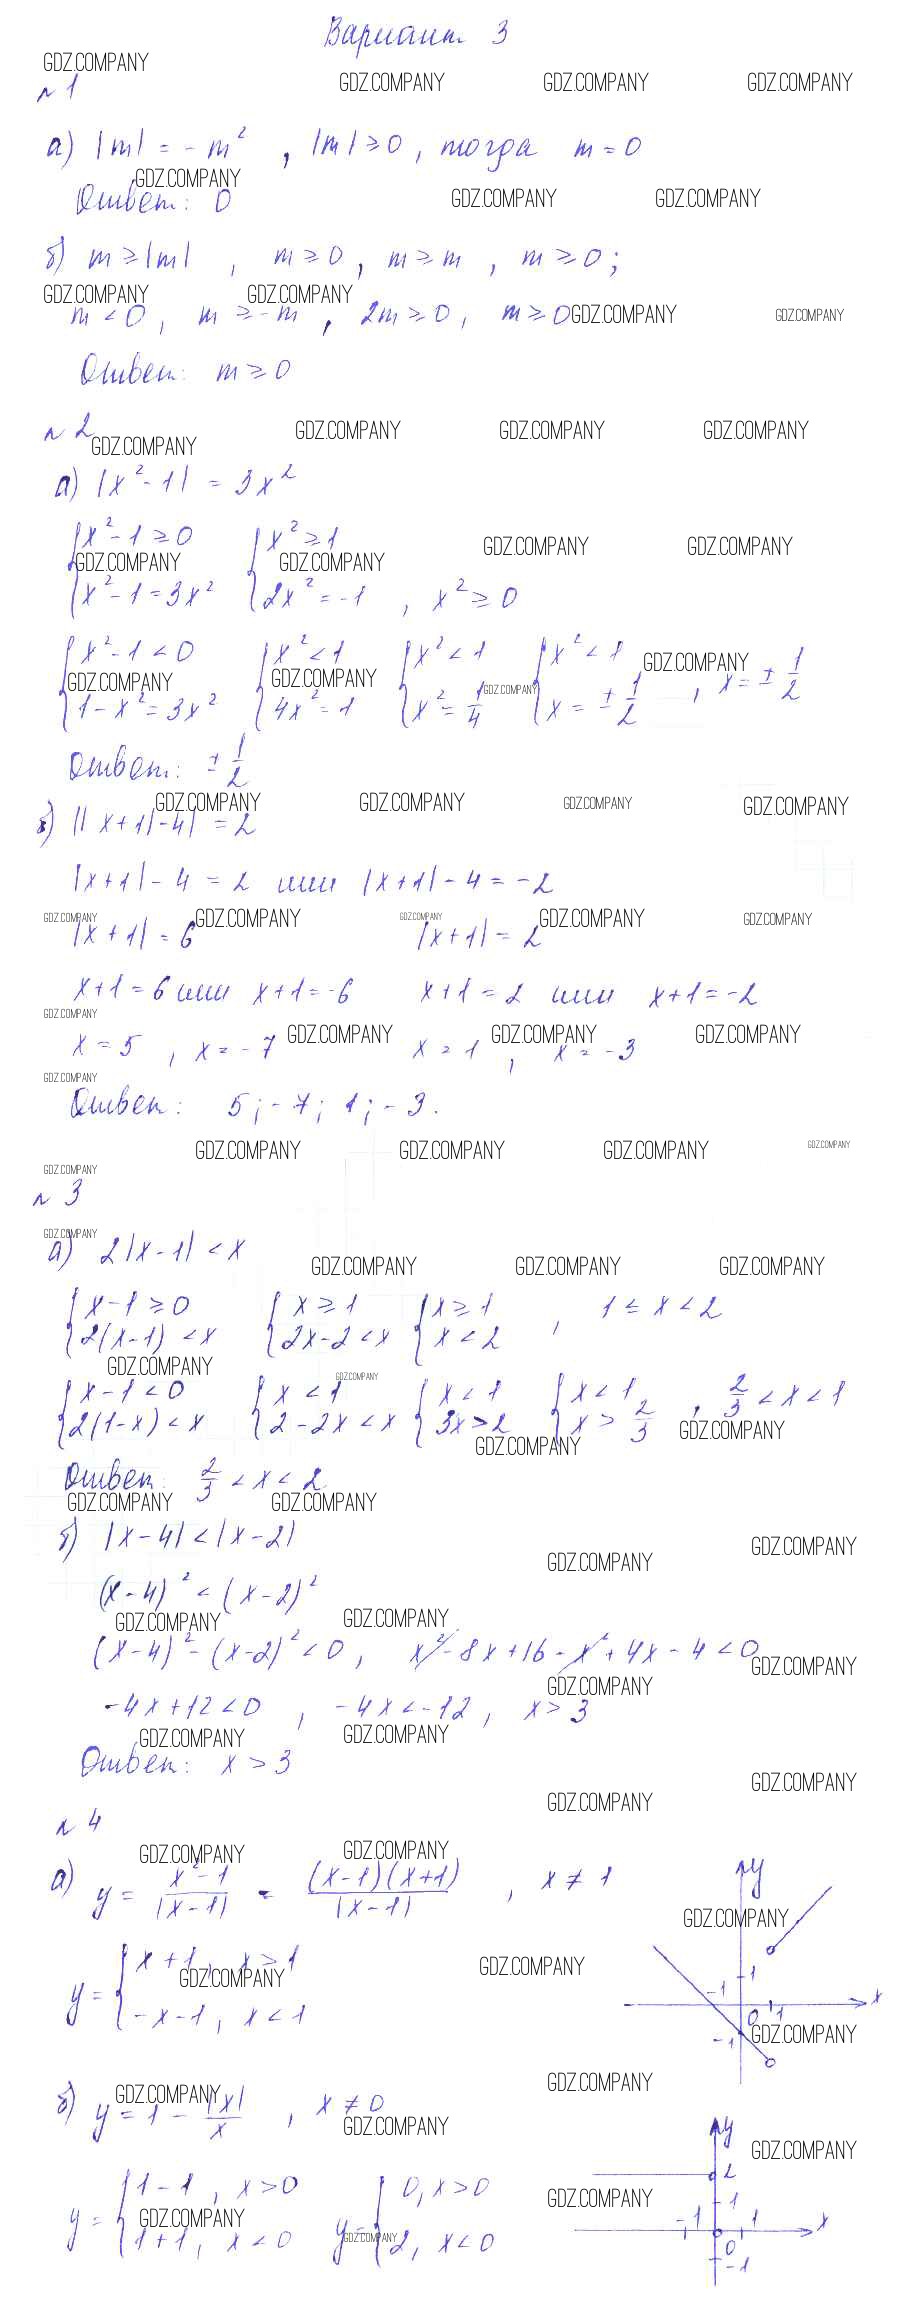 Вариант 3
GDZ.COMPANY
GDZ.COMPANY GDZ.COMPANY GDZ.COMPANY
№ 1
а) |m| = - m² , |m| ≥ 0 , тогда m = 0
GDZ.COMPANY
Ответ: 0 GDZ.COMPANY GDZ.COMPANY
б) m ≥ |m| , m ≥ 0 , m ≥ m , m ≥ 0 ;
GDZ.COMPANY GDZ.COMPANY
m < 0 , m ≥ -m , 2m ≥ 0 , m ≥ 0 GDZ.COMPANY GDZ.COMPANY
Ответ: m ≥ 0
№ 2 GDZ.COMPANY GDZ.COMPANY GDZ.COMPANY
GDZ.COMPANY
а) |x² - 1| = 3x²
{ x² - 1 ≥ 0 { x² ≥ 1 GDZ.COMPANY GDZ.COMPANY
GDZ.COMPANY GDZ.COMPANY
x² - 1 = 3x² 2x² = -1 , x² ≥ 0
{ x² - 1 < 0 { x² < 1 { x² < 1 { x² < 1 GDZ.COMPANY
GDZ.COMPANY GDZ.COMPANY GDZ.COMPANY
1 - x² = 3x² 4x² = 1 x² = 1/4 x = ± 1/2 , x = ± 1/2
Ответ: ± 1/2
GDZ.COMPANY GDZ.COMPANY GDZ.COMPANY GDZ.COMPANY
б) ||x+1| - 4| = 2
|x+1| - 4 = 2 или |x+1| - 4 = -2
GDZ.COMPANY GDZ.COMPANY GDZ.COMPANY GDZ.COMPANY GDZ.COMPANY
|x+1| = 6 |x+1| = 2
x+1 = 6 или x+1 = -6 x+1 = 2 или x+1 = -2
GDZ.COMPANY
GDZ.COMPANY GDZ.COMPANY GDZ.COMPANY
x = 5 , x = -7 x = 1 , x = -3
GDZ.COMPANY
Ответ: 5 ; -7 ; 1 ; -3.
GDZ.COMPANY GDZ.COMPANY GDZ.COMPANY GDZ.COMPANY
GDZ.COMPANY
№ 3
GDZ.COMPANY
а) 2|x-1| < x
GDZ.COMPANY GDZ.COMPANY GDZ.COMPANY
{ x-1 ≥ 0 { x ≥ 1 { x ≥ 1 , 1 ≤ x < 2
2(x-1) < x 2x-2 < x x < 2
GDZ.COMPANY GDZ.COMPANY
{ x-1 < 0 { x < 1 { x < 1 { x < 1 , 2/3 < x < 1
2(1-x) < x 2-2x < x 3x > 2 x > 2/3 GDZ.COMPANY
GDZ.COMPANY
Ответ: 2/3 < x < 2
GDZ.COMPANY GDZ.COMPANY
б) |x-4| < |x-2| GDZ.COMPANY
GDZ.COMPANY
(x-4)² < (x-2)²
GDZ.COMPANY GDZ.COMPANY
(x-4)² - (x-2)² < 0 , x² - 8x + 16 - x² + 4x - 4 < 0
GDZ.COMPANY
GDZ.COMPANY
-4x + 12 < 0 , -4x < -12 , x > 3
GDZ.COMPANY GDZ.COMPANY
Ответ: x > 3
GDZ.COMPANY
GDZ.COMPANY
№ 4
GDZ.COMPANY GDZ.COMPANY
а) y = x²-1 / |x-1| = (x-1)(x+1) / |x-1| , x ≠ 1
y
GDZ.COMPANY
y = { x+1 , x > 1
GDZ.COMPANY GDZ.COMPANY
-x-1 , x < 1
1
-1 x
0 1
-1 GDZ.COMPANY
GDZ.COMPANY
GDZ.COMPANY
б) y = 1 - |x| / x , x ≠ 0
GDZ.COMPANY
y
GDZ.COMPANY
2
y = { 1-1 , x > 0 y = { 0 , x > 0
GDZ.COMPANY GDZ.COMPANY GDZ.COMPANY
1+1 , x < 0 2 , x < 0
1
-1 1 x
0
-1